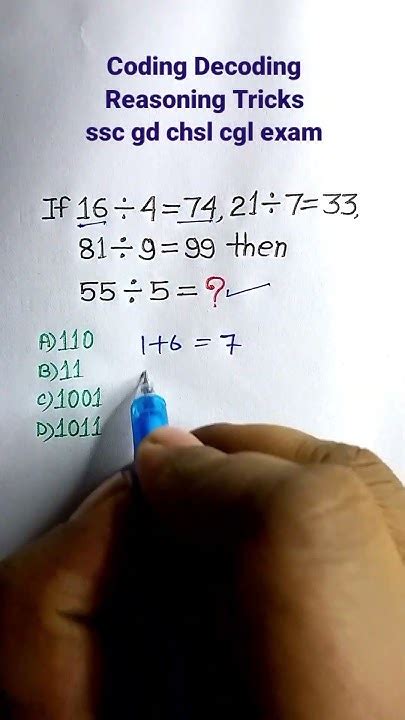 Coding Decoding
Reasoning Tricks
ssc gd chsl cgl exam
If 16÷4=74, 21÷7=33,
81÷9=99 then
55÷5=?
A)110
1+6=7
B)11
C)1001
D)1011